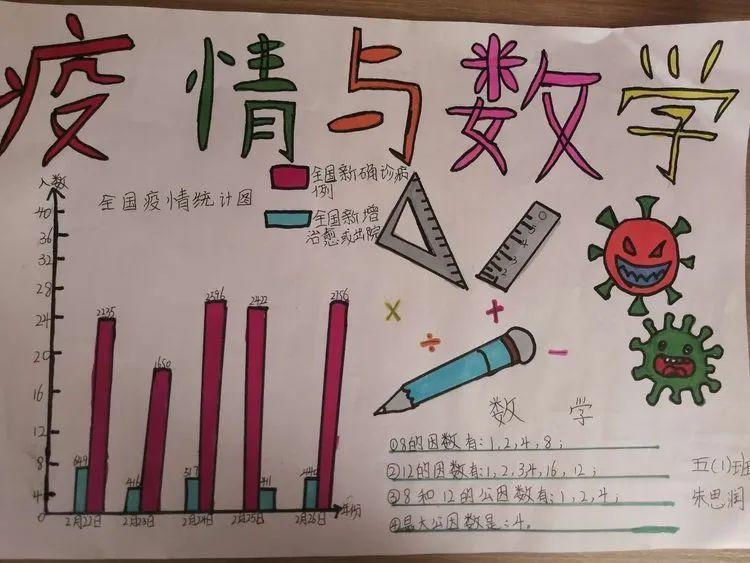 疫情与数学
人数
全国疫情统计图
全国新确诊病
例
全国新增
治愈或出院
40
36
32
28
24
20
16
12
8
4
0
649 2235
416 1650
517 2596
411 2422
2756
2月22日 2月23日 2月24日 2月25日 2月26日 年份
× ÷ + −
数 学
①8的因数有:1,2,4,8;
②12的因数有:1,2,3,4,16,12;
③8和12的公因数有:1,2,4;
④最大公因数是:4。
五(1)班
朱思润